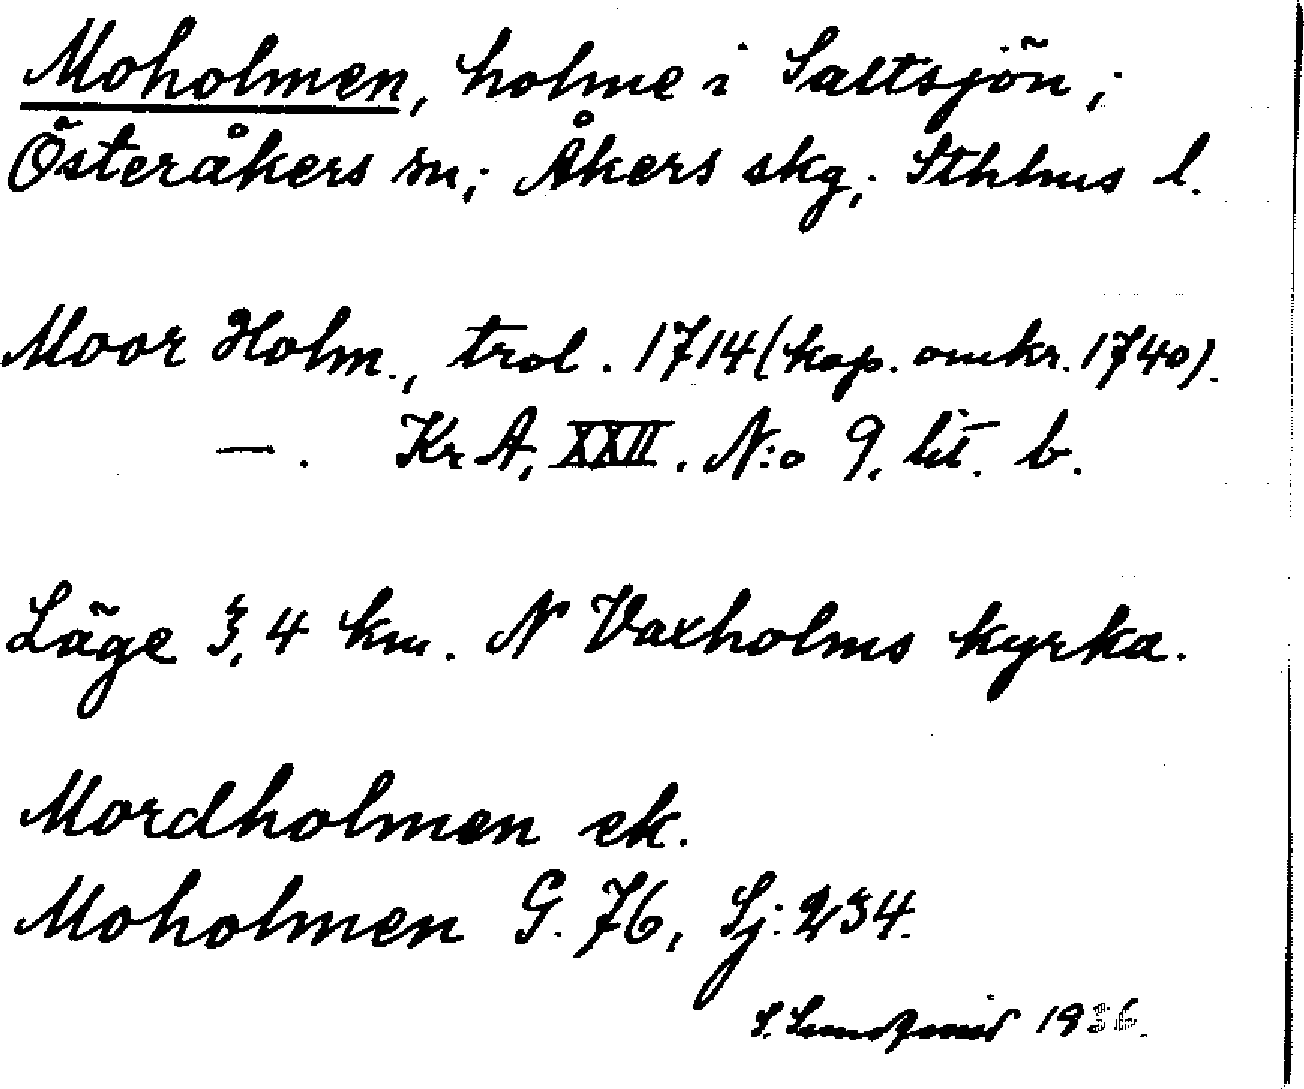 Moholmen, holme i Saltsjön;
Österåkers sn; Åkers skg; Sthlms l.
Moor Holm., trol. 1714 (kop. omkr. 1740).
—. KrA, XXII. N:o 9, lit. b.
Läge 3,4 km. N Vaxholms kyrka.
Mordholmen ek.
Moholmen G. 76, Sj: 234.
S. 1936.